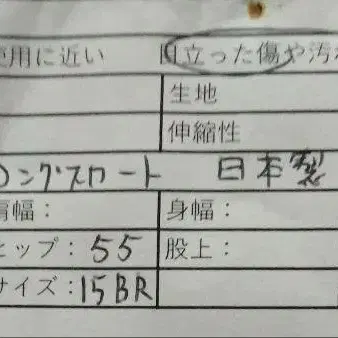 使用に近い 目立った傷や汚れ
生地
伸縮性
ロングスカート 日本製
肩幅： 身幅：
ヒップ：55 股上：
サイズ：15BR